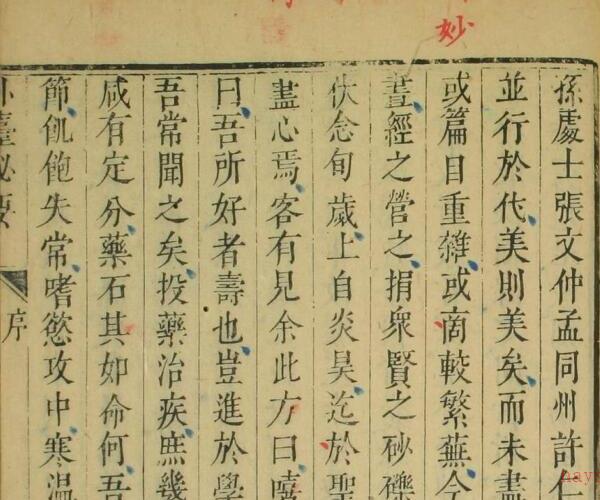 妙
孫處士張文仲孟同州許仁
並行於代美則美矣而未盡
或篇目重雜或商較繁蕪今
晝經之營之捐衆賢之砂礫
伏念旬歲上自炎昊迄於聖
盡心焉客有見余此方曰嘻
曰吾所好者壽也豈進於學
吾常聞之矣投藥治疾庶幾
咸有定分藥石其如命何吾
節飢飽失常嗜慾攻中寒溫
外臺秘要
序